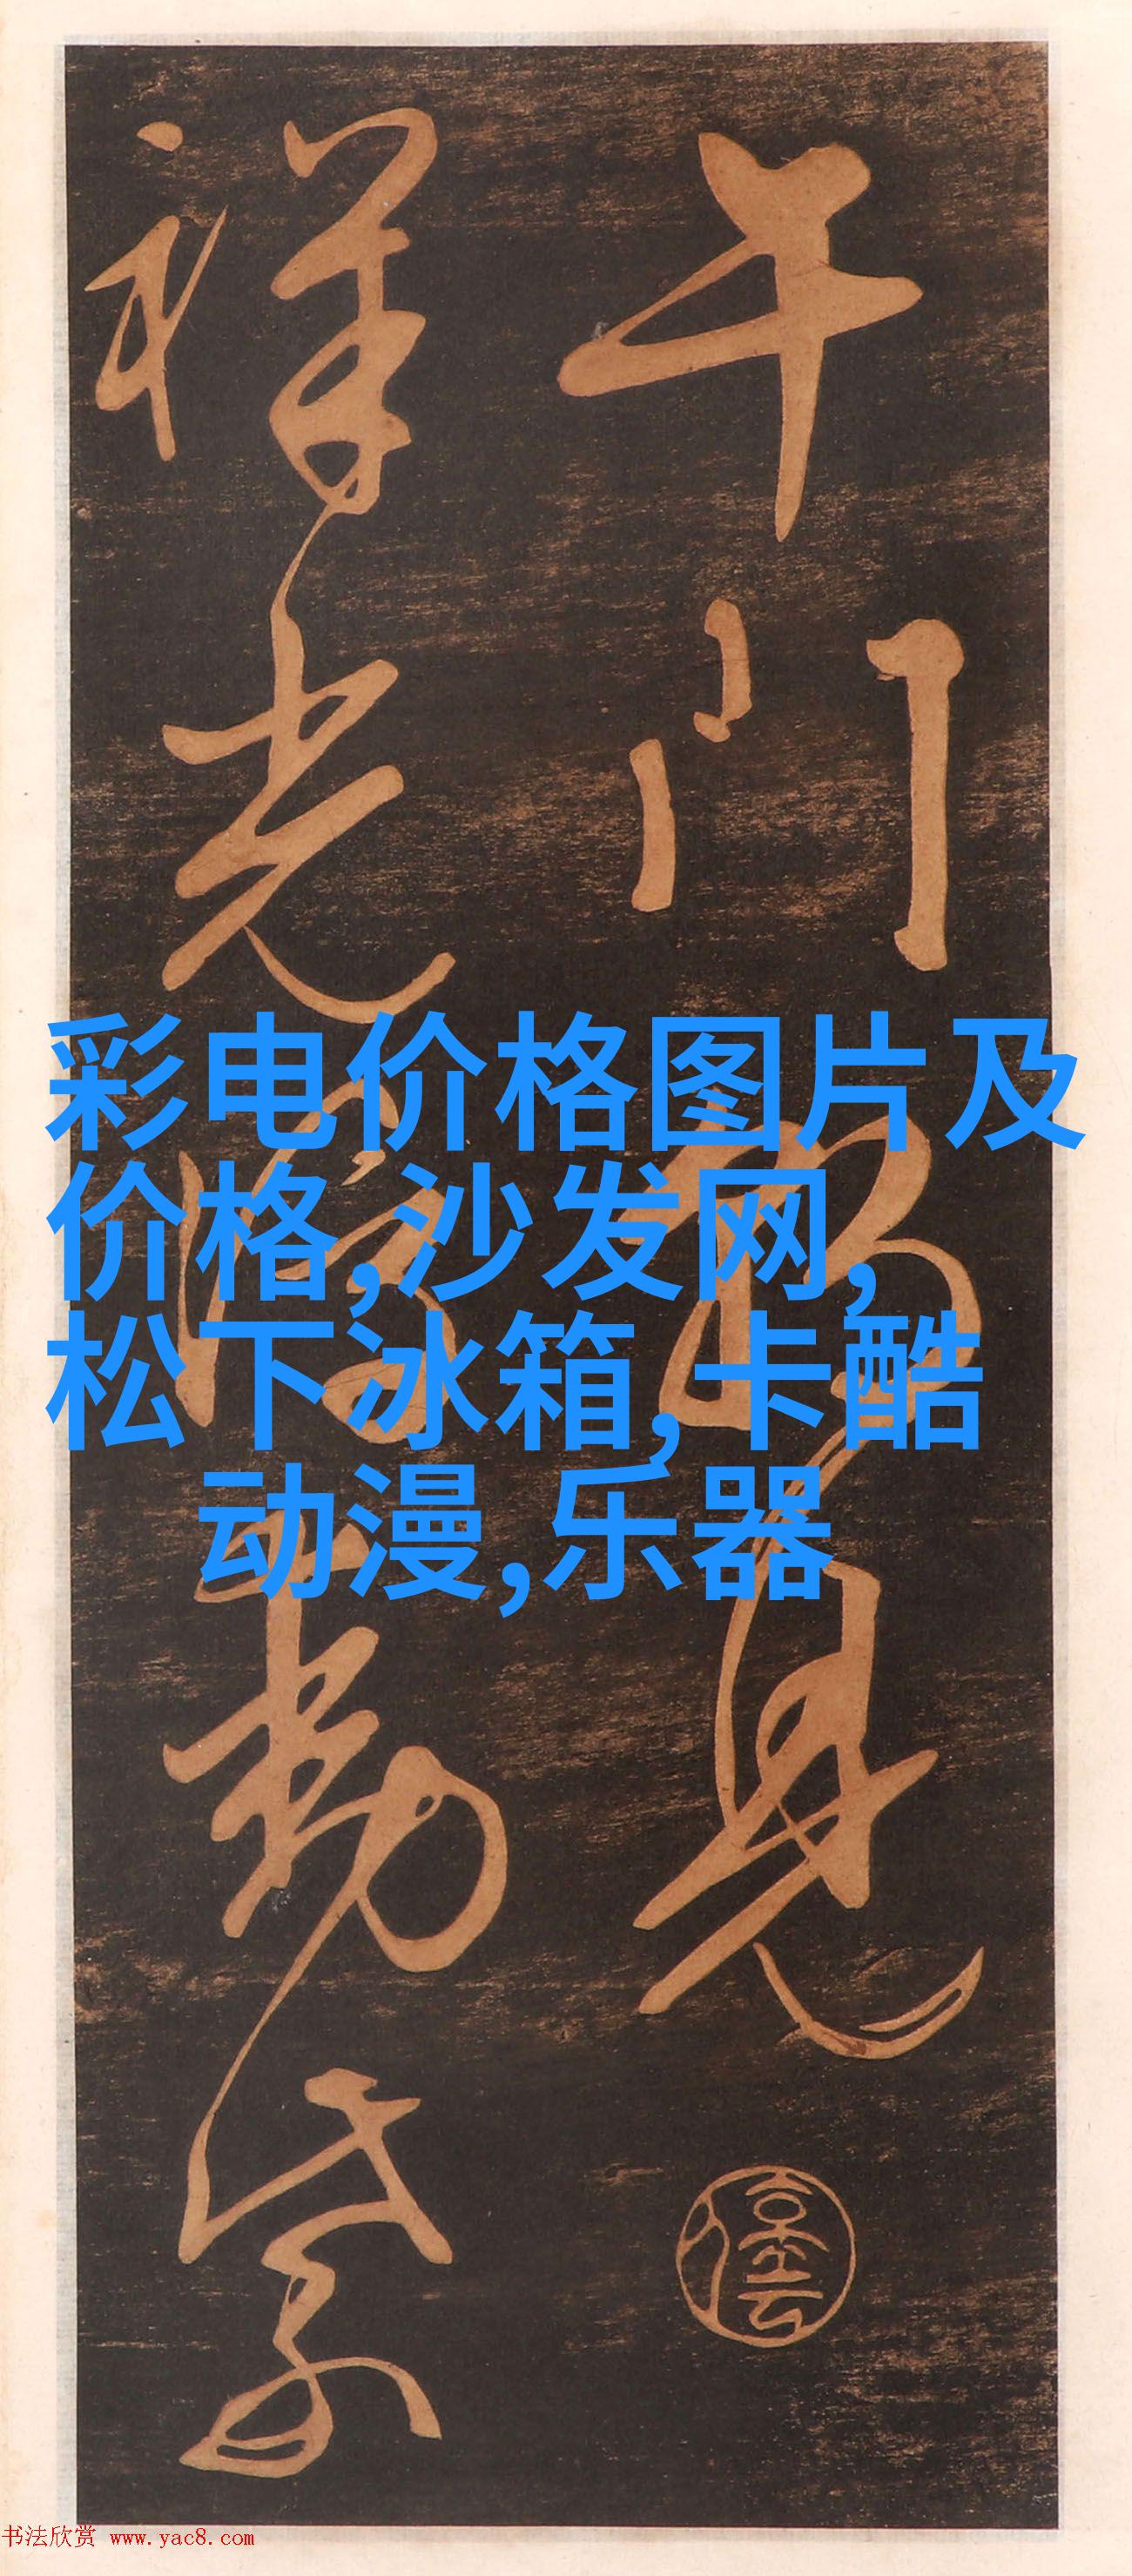 午门見
祥光動紫
彩电价格图片及
价格,沙发网,
松下冰箱,卡酷
动漫,乐器
书法欣赏 www.yac8.com